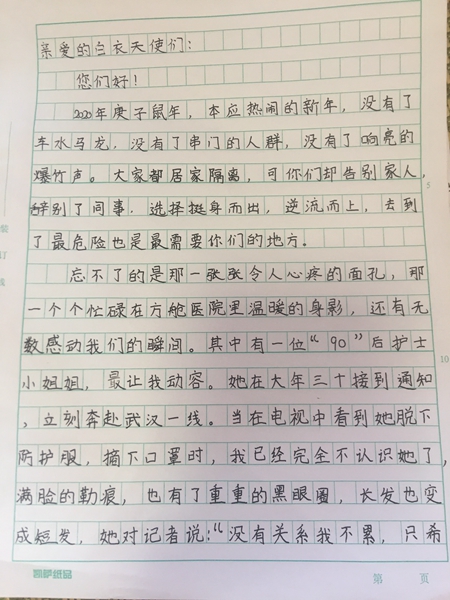 亲爱的白衣天使们：
您们好！
2020年庚子鼠年，本应热闹的新年，没有了
车水马龙，没有了串门的人群，没有了响亮的
爆竹声。大家都居家隔离，可你们却告别家人，
辞别了同事，选择挺身而出，逆流而上，去到
了最危险也是最需要你们的地方。
忘不了的是那一张张令人心疼的面孔，那
一个个忙碌在方舱医院里温暖的身影，还有无
数感动我们的瞬间。其中有一位“90”后护士
小姐姐，最让我动容。她在大年三十接到通知
，立刻奔赴武汉一线。当在电视中看到她脱下
防护服，摘下口罩时，我已经完全不认识她了，
满脸的勒痕，也有了重重的黑眼圈，长发也变
成短发，她对记者说：“没有关系我不累，只希
凯萨纸品
第 页
5
10
装
订